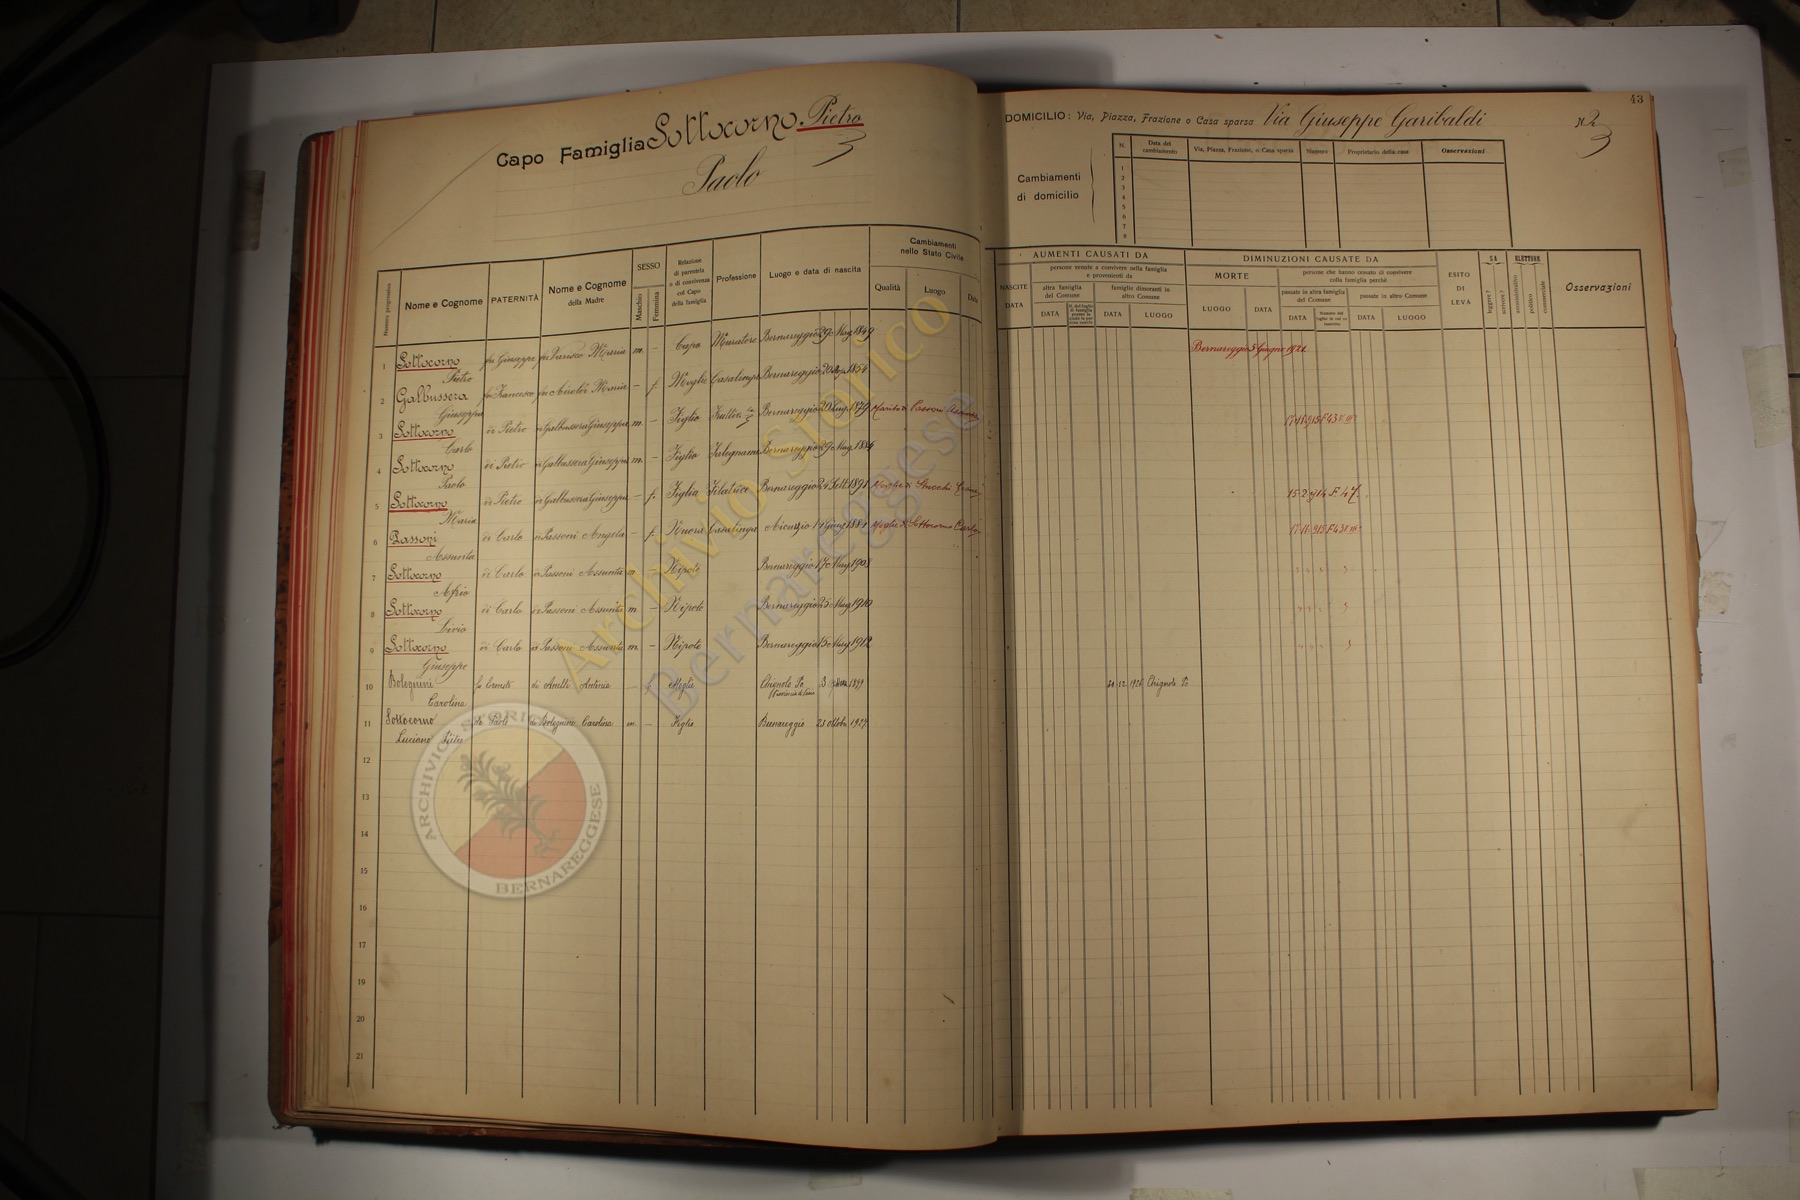 Capo Famiglia Sottocorno Pietro
Paolo
43
DOMICILIO: Via, Piazza, Frazione o Casa sparsa Via Giuseppe Garibaldi
Cambiamenti
di domicilio
N. Data del cambiamento Via, Piazza, Frazione, o Casa sparsa Numero Proprietario della casa Osservazioni
1
2
3
4
5
6
7
8
Numero progressivo
Nome e Cognome
PATERNITÀ
Nome e Cognome
della Madre
SESSO
Maschio
Femmina
Relazione
di parentela
o di convivenza
col Capo
della famiglia
Professione
Luogo e data di nascita
Cambiamenti
nello Stato Civile
Qualità Luogo Data
AUMENTI CAUSATI DA
NASCITE
DATA
persone venute a convivere nella famiglia
e provenienti da
altra famiglia
del Comune
DATA
famiglie dimoranti in
altro Comune
DATA LUOGO
DIMINUZIONI CAUSATE DA
MORTE
LUOGO DATA
persone che hanno cessato di convivere
colla famiglia perchè
passate in altra famiglia
del Comune
DATA
passate in altro Comune
DATA LUOGO
ESITO
DI
LEVA
SA
leggere?
scrivere?
ELETTORE
amministrativo
politico
commerciale
Osservazioni
1 Sottocorno fu Giuseppe fu Varisco Maria m. – Capo Muratore Bernareggio 29 Mag. 1849 Bernareggio 5 Giugno 1921
Pietro
2 Galbussera fu Francesco Maria – f. Moglie Casalinga Bernareggio 20 1854
Giuseppa
3 Sottocorno di Pietro di Galbussera Giuseppa m. – Figlio Bernareggio 20 1879 Marito di Passoni Assunta 17-11-915 F 43
Carlo
4 Sottocorno di Pietro di Galbussera Giuseppa m. – Figlio Falegname Bernareggio 29 Mag. 1884
Paolo
5 Sottocorno di Pietro di Galbussera Giuseppa – f. Figlia Filatrice Bernareggio 24 Sett. 1891 Moglie di 15-2-914 F 47
Maria
6 Passoni di Carlo di Passoni Angela – f. Nuora Casalinga Aicurzio 1881 Moglie di Sottocorno Carlo 17-11-915 F 43
Assunta
7 Sottocorno di Carlo di Passoni Assunta m – Nipote Bernareggio 17 Mag. 1908
Afrio
8 Sottocorno di Carlo di Passoni Assunta m – Nipote Bernareggio 25 Mag. 1910
Livio
9 Sottocorno di Carlo di Passoni Assunta m. – Nipote Bernareggio 15 Mag. 1912
Giuseppe
10 Bolognini fu Ernesto di Anelli Antonia – f. Moglie Chignolo Po 3 1899 1926 Chignolo Po
Carolina
11 Sottocorno di Paolo di Bolognini Carolina m – Figlio Bernareggio 23 ottobre 1927
Luciano Pietro
12
13
14
15
16
17
18
19
20
21
Archivio Storico
Bernareggese
ARCHIVIO STORICO
BERNAREGGESE